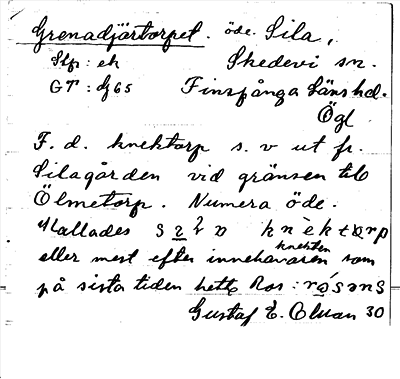 Grenadjärtorpet. öde. Sila,
Slp: ek Skedevi sn.
GT: dg 65 Finspånga länshd.
Ögl.
F. d. knektorp s. v ut fr.
Silagården vid gränsen till
Ölmetorp. Numera öde.
Kallades knèktorp
eller mest efter innehavaren knekten som
på sista tiden hette Ros: rósəns
Gustaf E. 30